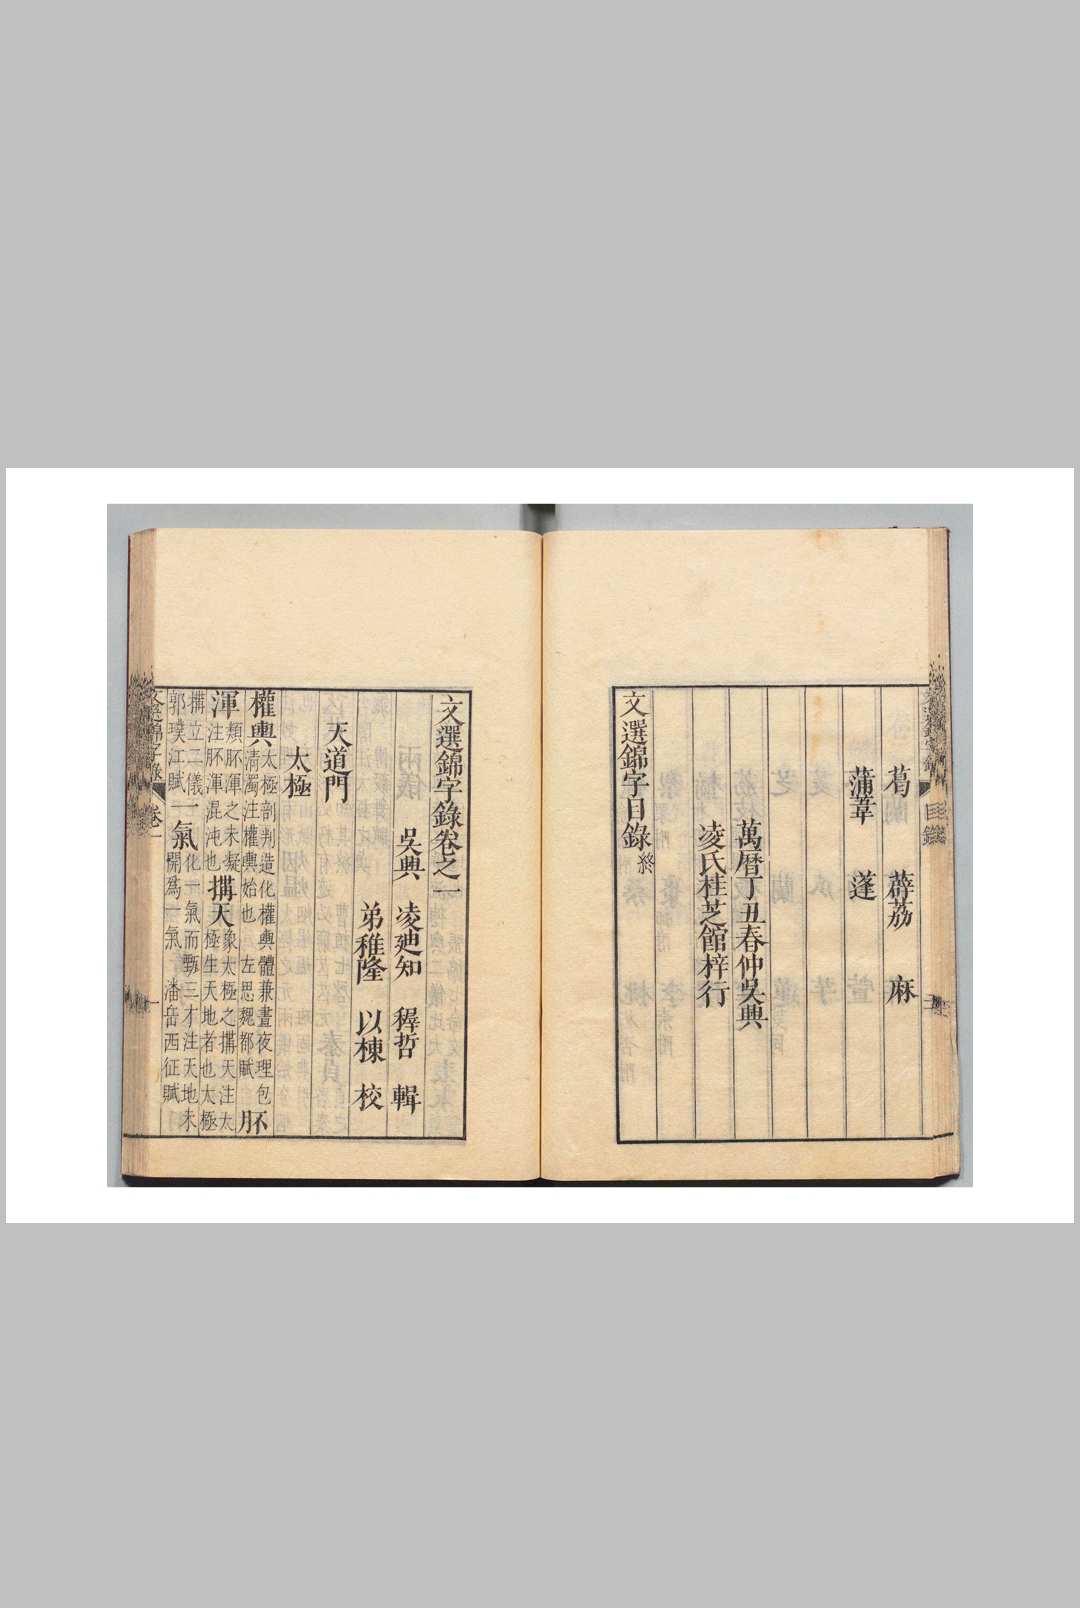 葛 薜荔 麻
蒲葦 蓬
萬曆丁丑春仲吳興
凌氏桂芝館梓行
文選錦字目錄終
文選錦字錄卷之一
吳興 凌廸知 穉哲 輯
弟稚隆 以棟 校
天道門
太極
權輿太極剖判造化權輿體兼晝夜理包
清濁注權輿始也 左思魏都賦 肧
渾類肧渾之未凝 搆天象太極之搆天注太
注肧渾混沌也 極生天地者也太極
搆立二儀 一氣化一氣而甄三才注天地未
郭璞江賦 開爲一氣 潘岳西征賦
文選錦字錄 卷一 一